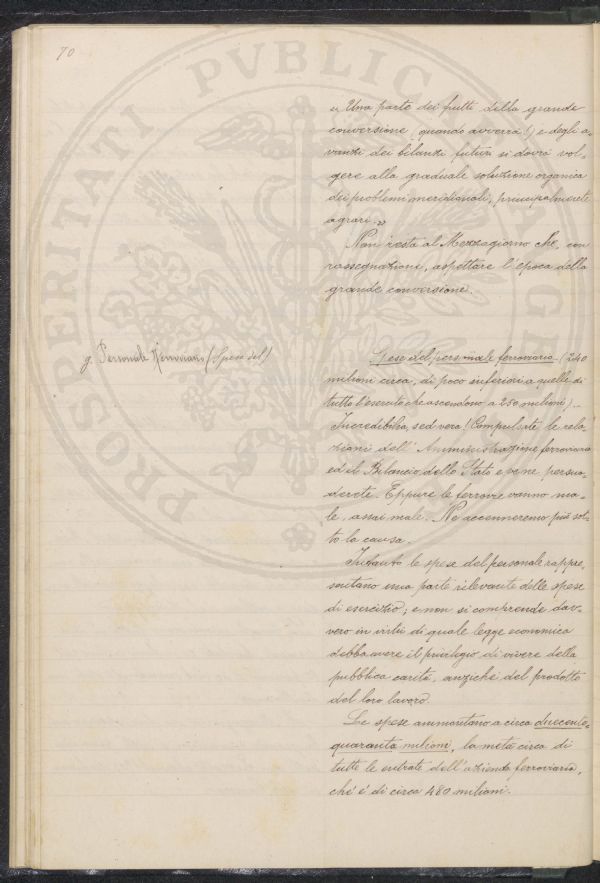 70
« Una parte dei frutti della grande
conversione (quando avverrà!) e degli a-
vanzi dei bilanzi futuri si dovrà vol-
gere alla graduale soluzione organica
dei problemi meridionali, principalmente
agrari. »
Non resta al Mezzagiorno che, con
rassegnazione, aspettare l'epoca della
grande conversione.
g. Personale Ferroviario (Spese del)
Spese del personale ferroviario. (240
milioni circa, di poco inferiori a quelle di
tutto l'esercito che ascendono a 250 milioni) -
Incredibilia, sed vera! Compulsate le rela
zioni dell'Amministrazione ferroviaria
ed il Bilancio dello Stato e ve ne persua-
derete. Eppure le ferrovie vanno ma-
le, assai male. Ne accenneremo più sot-
to la causa.
Intanto le spese del personale rappre-
sentano una parte rilevante delle spese
di esercizio; e non si comprende dav-
vero in virtù di quale legge economica
debba avere il privilegio di vivere della
pubblica carità, anziché del prodotto
del loro lavoro.
Le spese ammontano a circa duecento-
quaranta milioni, la metà circa di
tutte le entrate dell'azienda ferroviaria,
ché é di circa 480 milioni.
PROSPERITATI PVBLICAE